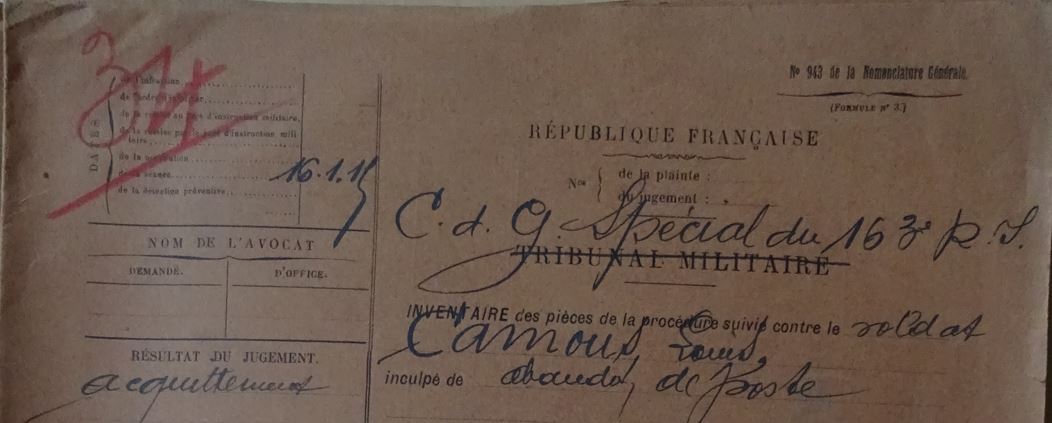 34
Nº 943 de la Nomenclature Générale.
(FORMULE Nº 3.)
RÉPUBLIQUE FRANÇAISE
Nos
de la plainte :
du jugement :
C. d. G. Spécial du 163e R. I.
TRIBUNAL MILITAIRE
INVENTAIRE des pièces de la procédure suivie contre le soldat
Camous, Louis,
inculpé de abandon de poste
DATES
de l'infraction
de l'ordre d'informer
d'instruction militaire,
d'instruction mili
taire
de la
de la séance 16.1.15
de la détention préventive
NOM DE L'AVOCAT
DEMANDÉ.
D'OFFICE.
RÉSULTAT DU JUGEMENT.
acquittement